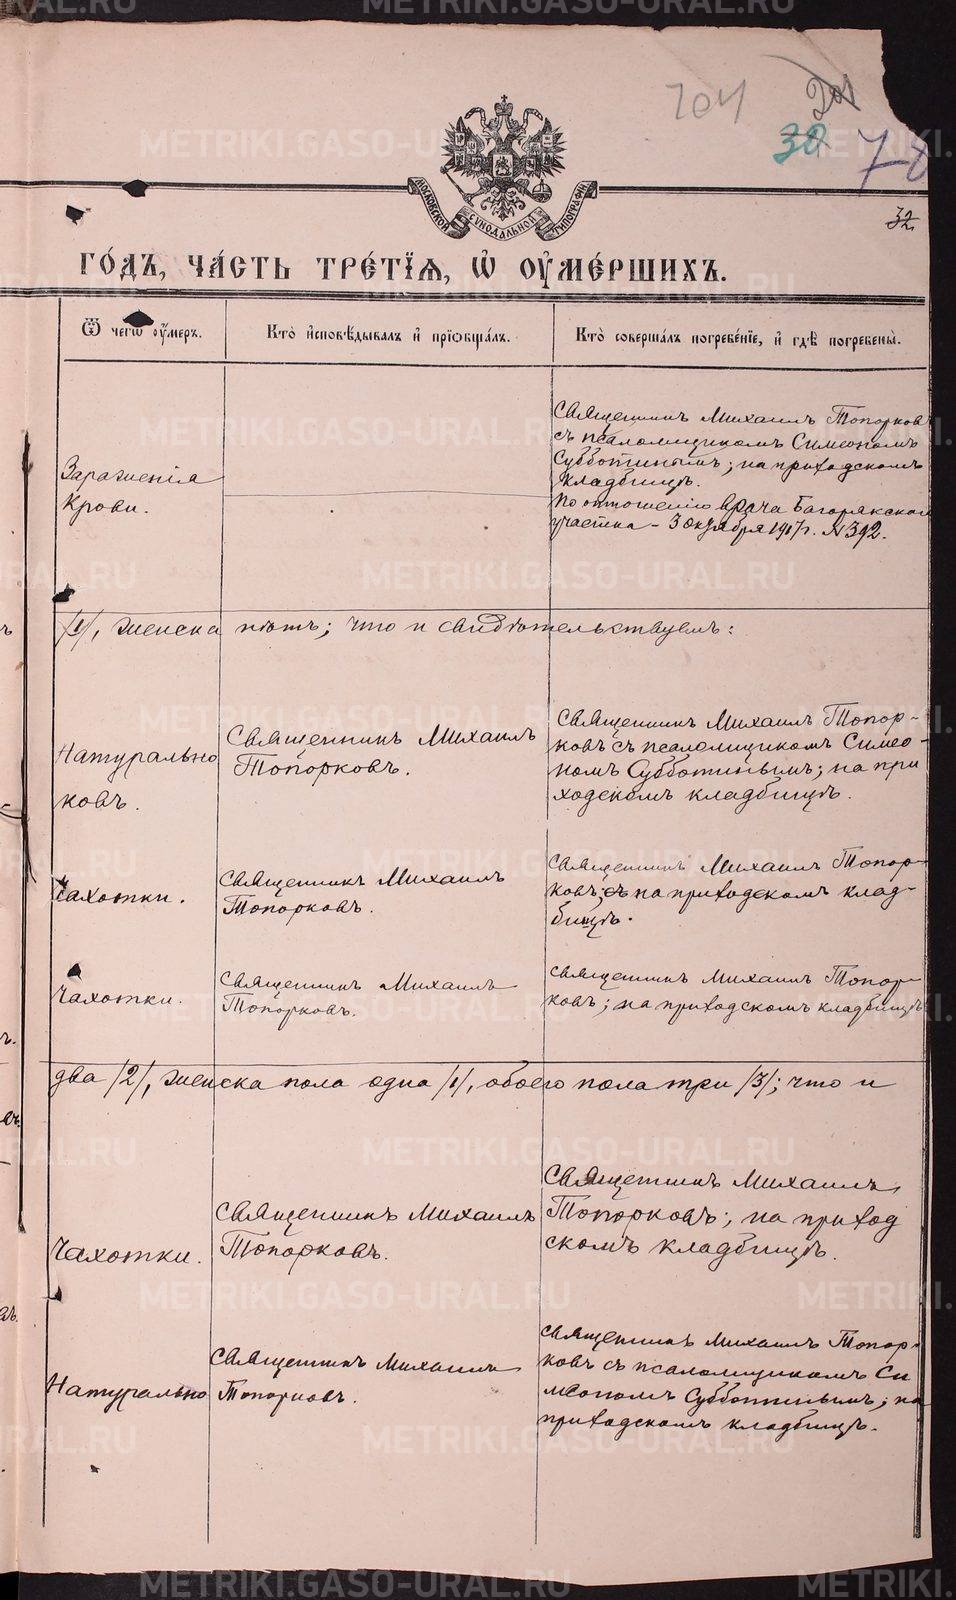 204
30
78
32
МОСКОВСКОЙ СѴНОДАЛЬНОЙ ТИПОГРАФІИ
ГО́ДЪ, ЧА́СТЬ ТРЕ́ТЇѦ, Ѡ҆ ОУ҆МЕ́РШИХЪ.
Ѿ чегѡ̀ оу҆́меръ.
Кто̀ и҆сповѣ́дывалъ и҆ прїѡбща́лъ.
Кто̀ соверша́лъ погребе́нїе, и҆ гдѣ̀ погребены̀.
Зараженія
Крови.
Священникъ Михаилъ Топорковъ
съ псаломщикомъ Симеономъ
Субботинымъ; на приходскомъ
кладбищѣ.
По отношенію врача Багарякскаго
участка – 3 октября 1917 г. №392.
/1/, женска нѣтъ; что и свидѣтельствуемъ:
Натурально
ковъ.
Священникъ Михаилъ
Топорковъ.
Священникъ Михаилъ Топор-
ковъ съ псаломщикомъ Симео-
номъ Субботинымъ; на при
ходскомъ кладбищѣ.
Чахотки.
Священникъ Михаилъ
Топорковъ.
Священникъ Михаилъ Топор-
ковъ; на приходскомъ клад-
бищѣ.
Чахотки.
Священникъ Михаилъ
Топорковъ.
Священникъ Михаилъ Топор-
ковъ; на приходскомъ кладбищѣ
два /2/, женска пола одна /1/, обоего пола три /3/; что и
Чахотки.
Священникъ Михаилъ
Топорковъ.
Священникъ Михаилъ
Топорковъ; на приход
скомъ кладбищѣ.
Натурально
Священникъ Михаилъ
Топорковъ.
Священникъ Михаилъ Топор-
ковъ съ псаломщикомъ Си
меономъ Субботинымъ; на
приходскомъ кладбищѣ.
METRIKI.GASO-URAL.RU